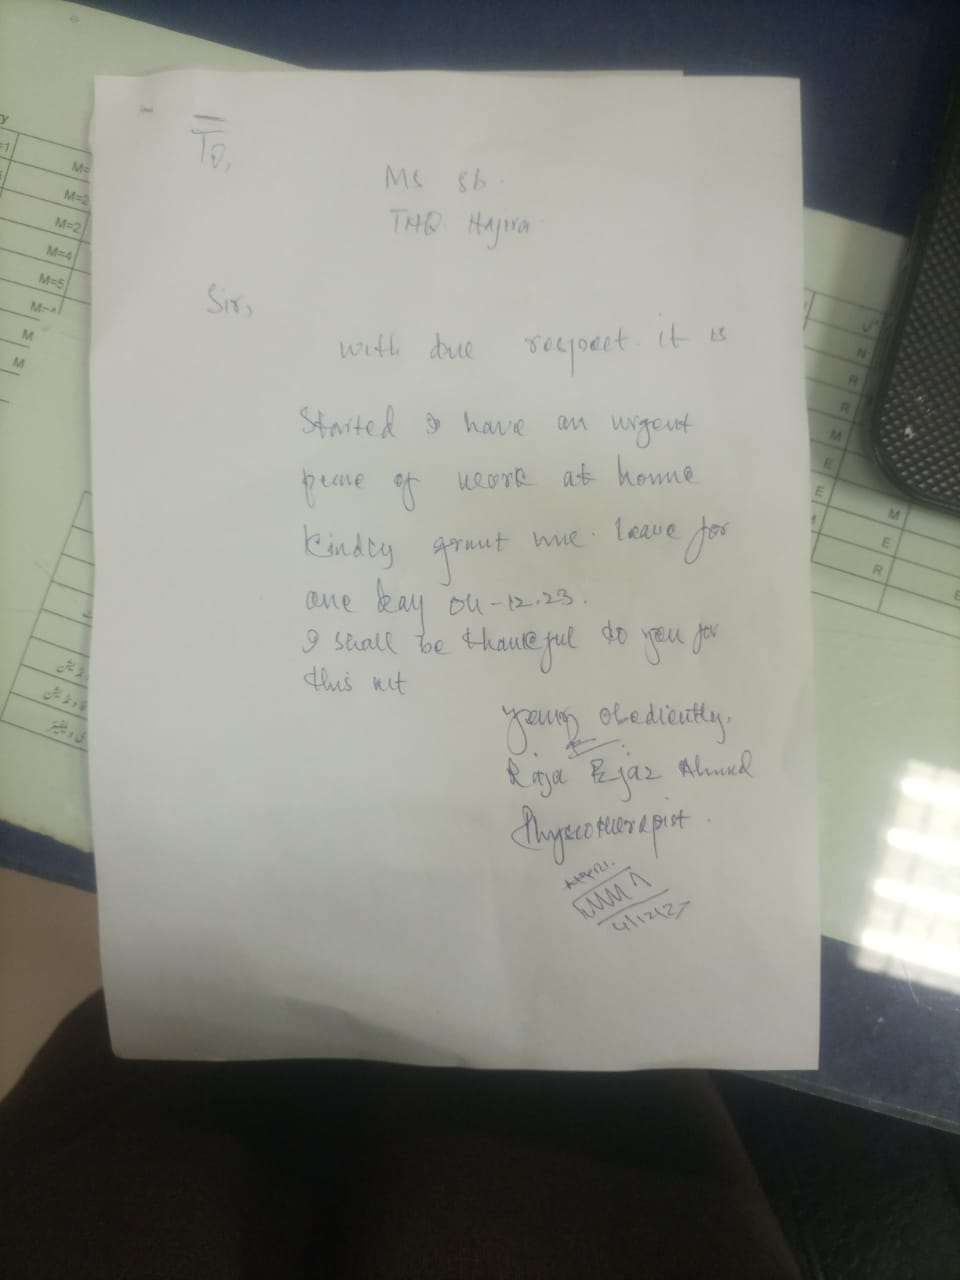 To,
MS Sb.
THQ Hajira
Sir,
with due respect it is
Started I have an urgent
peace of work at home
kindly grant me leave for
one day 04-12.23.
I shall be thankful to you for
this act
yours obediently,
Raja Ejaz Ahmed
Physiotherapist.
4/12/23
M=2
M=2
M=4
M=5
M
M
N
R
R
M
E
E
M
E
R
E